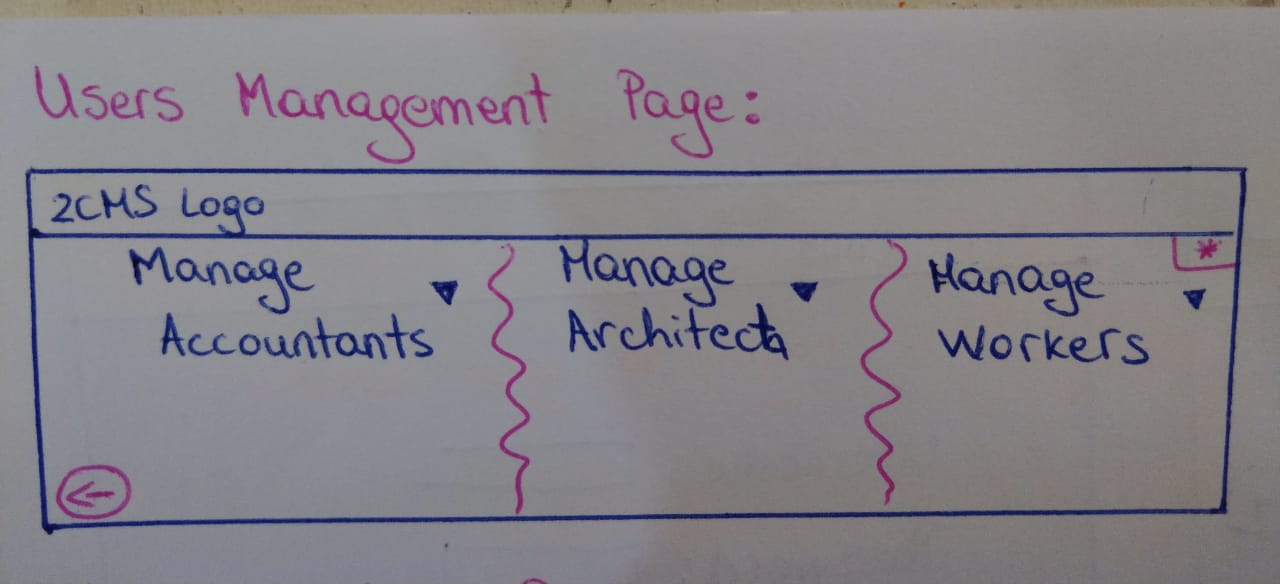 Users Management Page:
2CMS Logo
Manage
Accountants
Manage
Architects
Manage
Workers
*